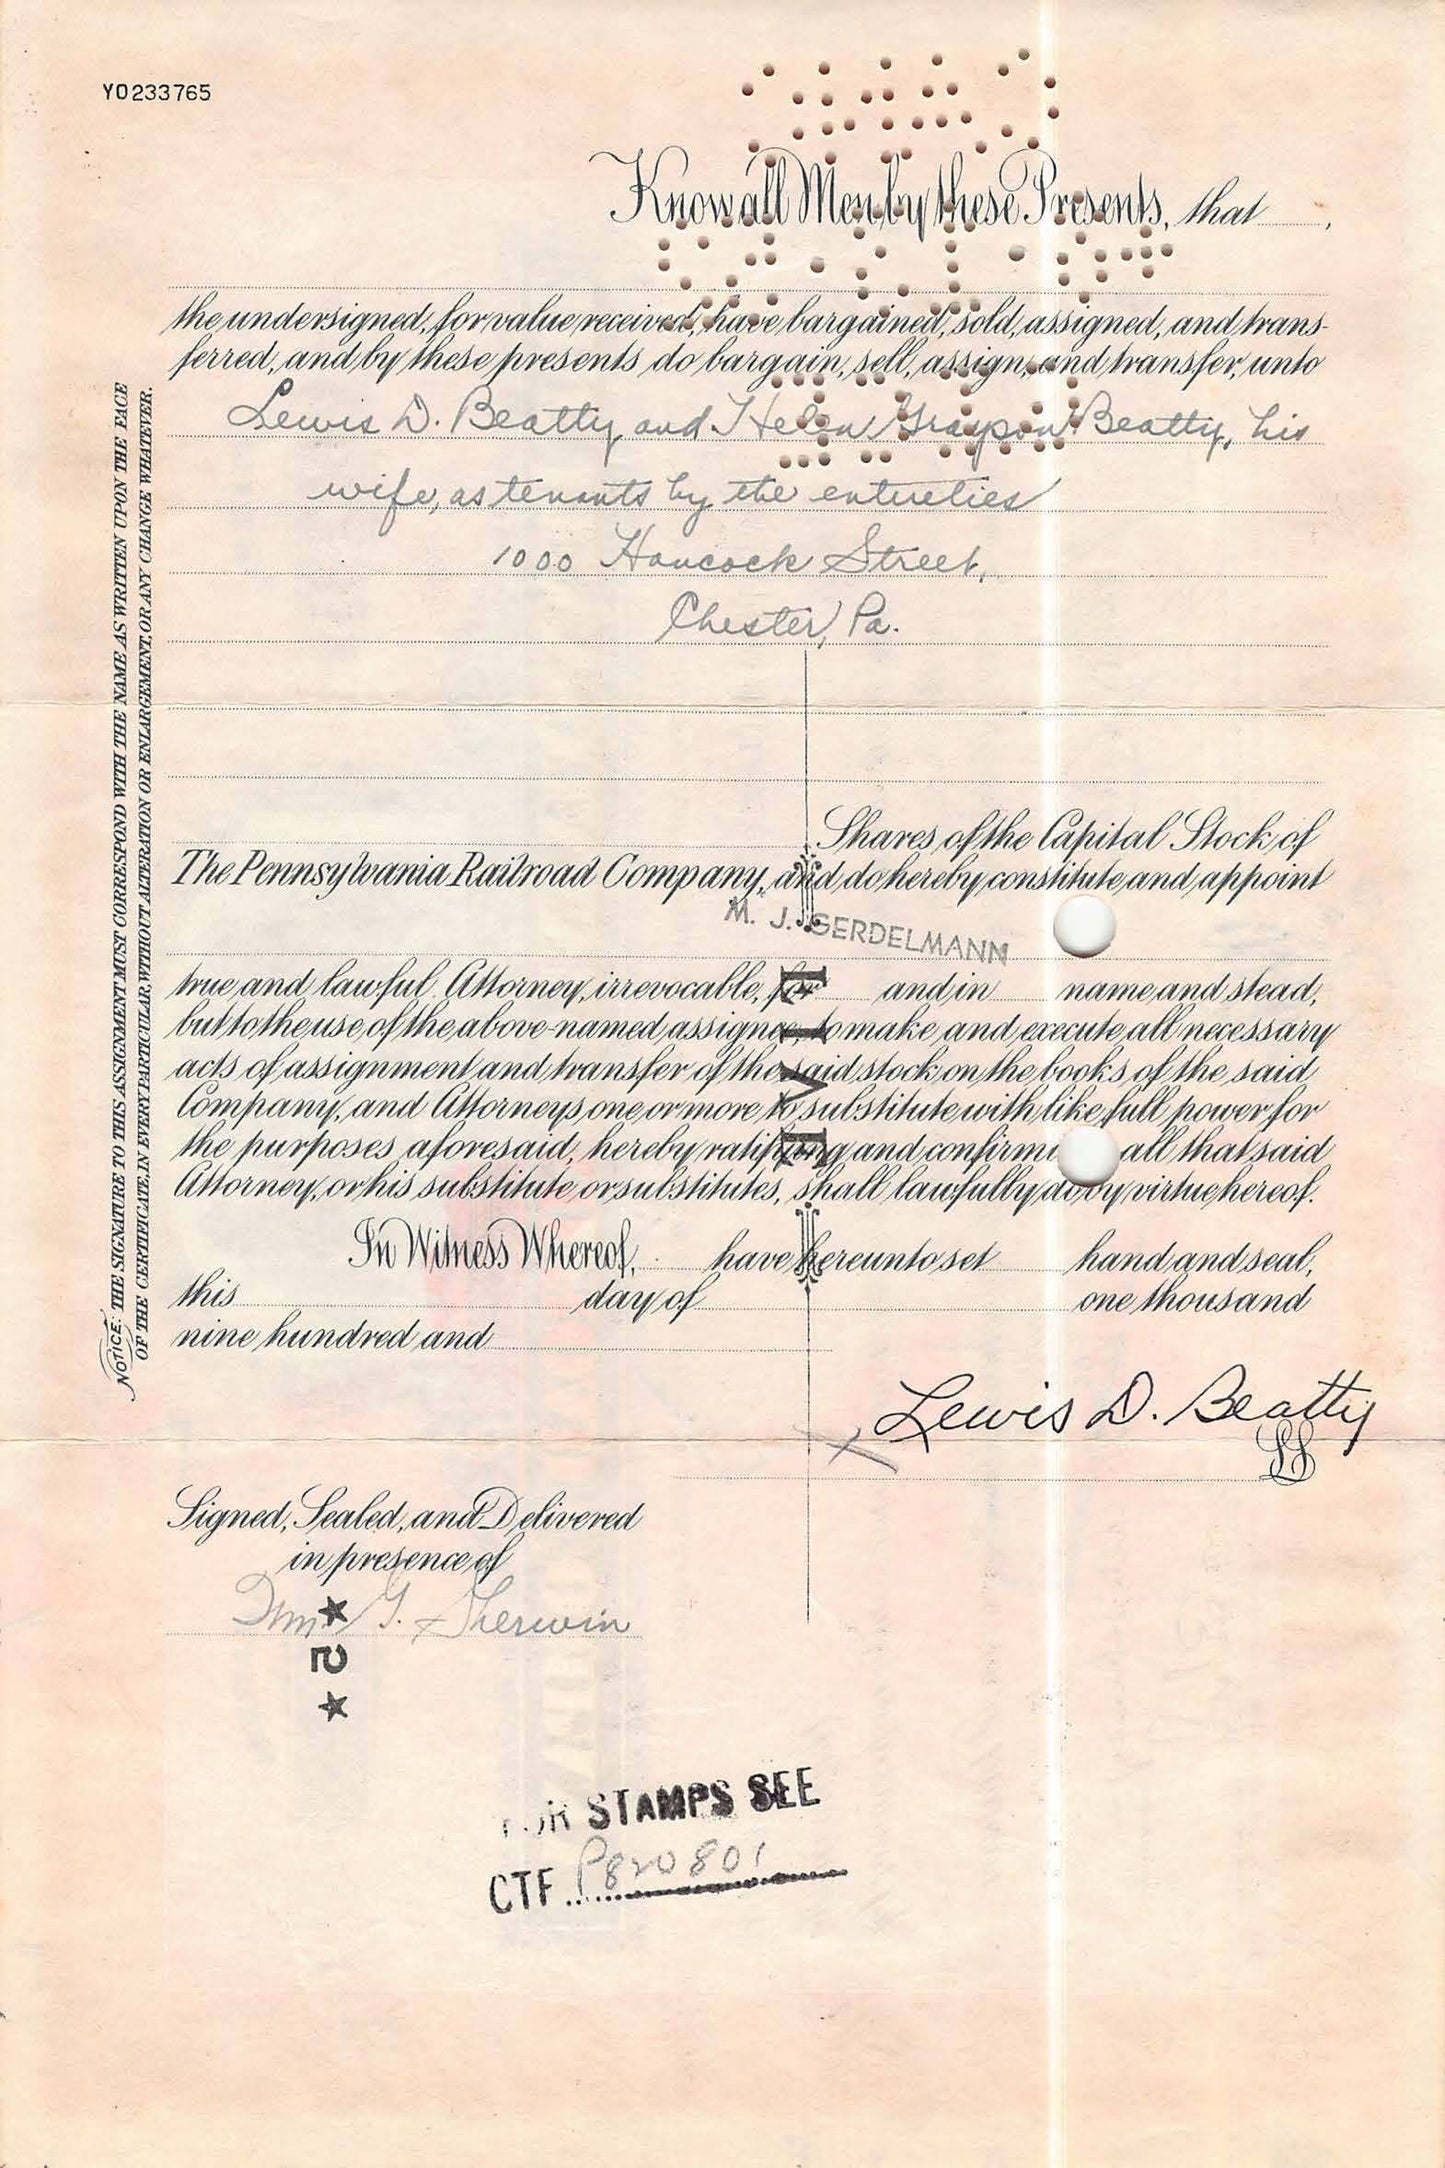 YO233765
Know all Men by these Presents, that ,
the undersigned, for value received, have bargained, sold, assigned, and trans-
ferred, and by these presents do bargain, sell, assign, and transfer, unto
Lewis D. Beatty and Helen Grayson Beatty, his
wife, as tenants by the entireties
1000 Hancock Street,
Chester, Pa.
Shares of the Capital Stock of
The Pennsylvania Railroad Company, and do hereby constitute and appoint
M. J. GERDELMANN
true and lawful Attorney, irrevocable, for and in name and stead,
but to the use of the above-named assignee, to make and execute all necessary
acts of assignment and transfer of the said stock on the books of the said
Company, and Attorneys one or more to substitute with like full power for
the purposes aforesaid, hereby ratifying and confirmi all that said
Attorney, or his substitute or substitutes, shall lawfully do by virtue hereof.
In Witness Whereof, have hereunto set hand and seal,
this day of one thousand
nine hundred and
Lewis D. Beatty
LS
Signed, Sealed, and Delivered
in presence of
Wm G. Sherwin
★ 5 ★
FOR STAMPS SEE
CTF P820801
NOTICE: THE SIGNATURE TO THIS ASSIGNMENT MUST CORRESPOND WITH THE NAME AS WRITTEN UPON THE FACE
OF THE CERTIFICATE, IN EVERY PARTICULAR, WITHOUT ALTERATION OR ENLARGEMENT, OR ANY CHANGE WHATEVER.